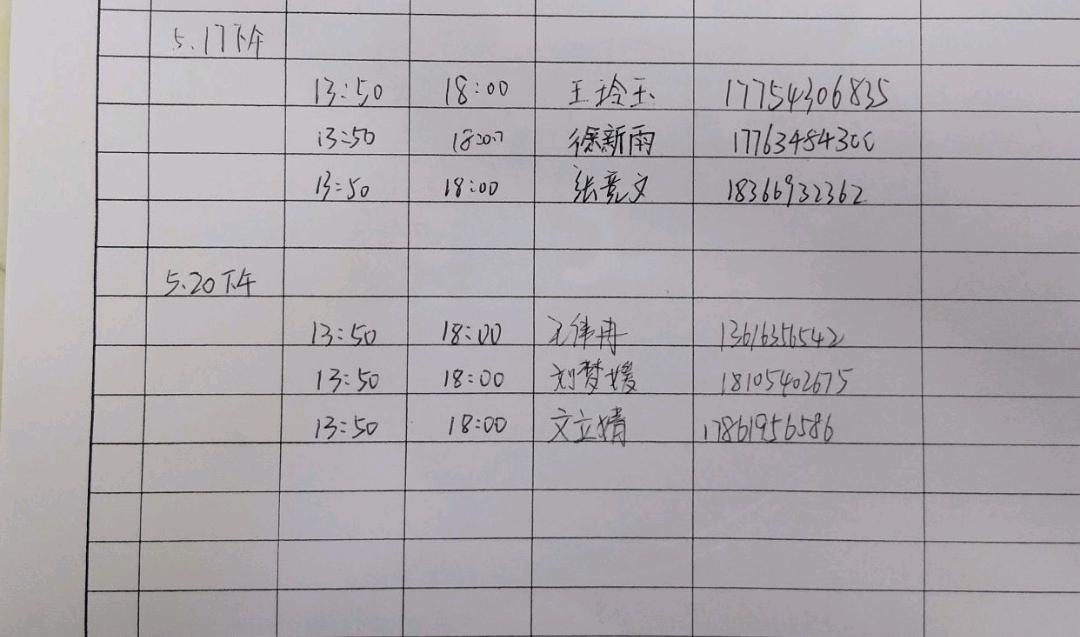 5.17下午
13:50 18:00 王玲玉 17754306835
13:50 徐新雨 17763484300
13:50 18:00 张竞文 18366932362
5.20下午
13:50 18:00 王伟冉 13616356542
13:50 18:00 刘梦媛 18105402675
13:50 18:00 文立婧 17861956586